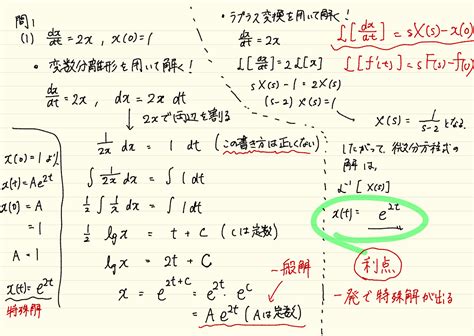 問1
(1) dx/dt = 2x , x(0)=1
• 変数分離形を用いて解く！
dx/dt = 2x , dx = 2x dt
2xで両辺を割る
1/2x dx = 1 dt (この書き方は正しくない)
∫ 1/2x dx = ∫ 1 dt
1/2 ∫ 1/x dx = ∫ 1 dt
1/2 log x = t + C (Cは定数)
log x = 2t + C
x = e^{2t+C} = e^{2t} · e^{C}
= A e^{2t} (Aは定数)
一般解
x(0) = 1 より
x(t) = A e^{2t}
x(0) = A
= 1
A = 1
x(t) = e^{2t}
特殊解
• ラプラス変換を用いて解く！
dx/dt = 2x
L[dx/dt] = 2L[x]
sX(s) - 1 = 2X(s)
(s-2) X(s) = 1
L[dx/dt] = sX(s) - x(0)
L[f'(t)] = sF(s) - f(0)
X(s) = 1/(s-2) となる
したがって, 微分方程式の
解は,
L⁻¹[X(s)]
x(t) = e^{2t}
利点
一発で特殊解が出る